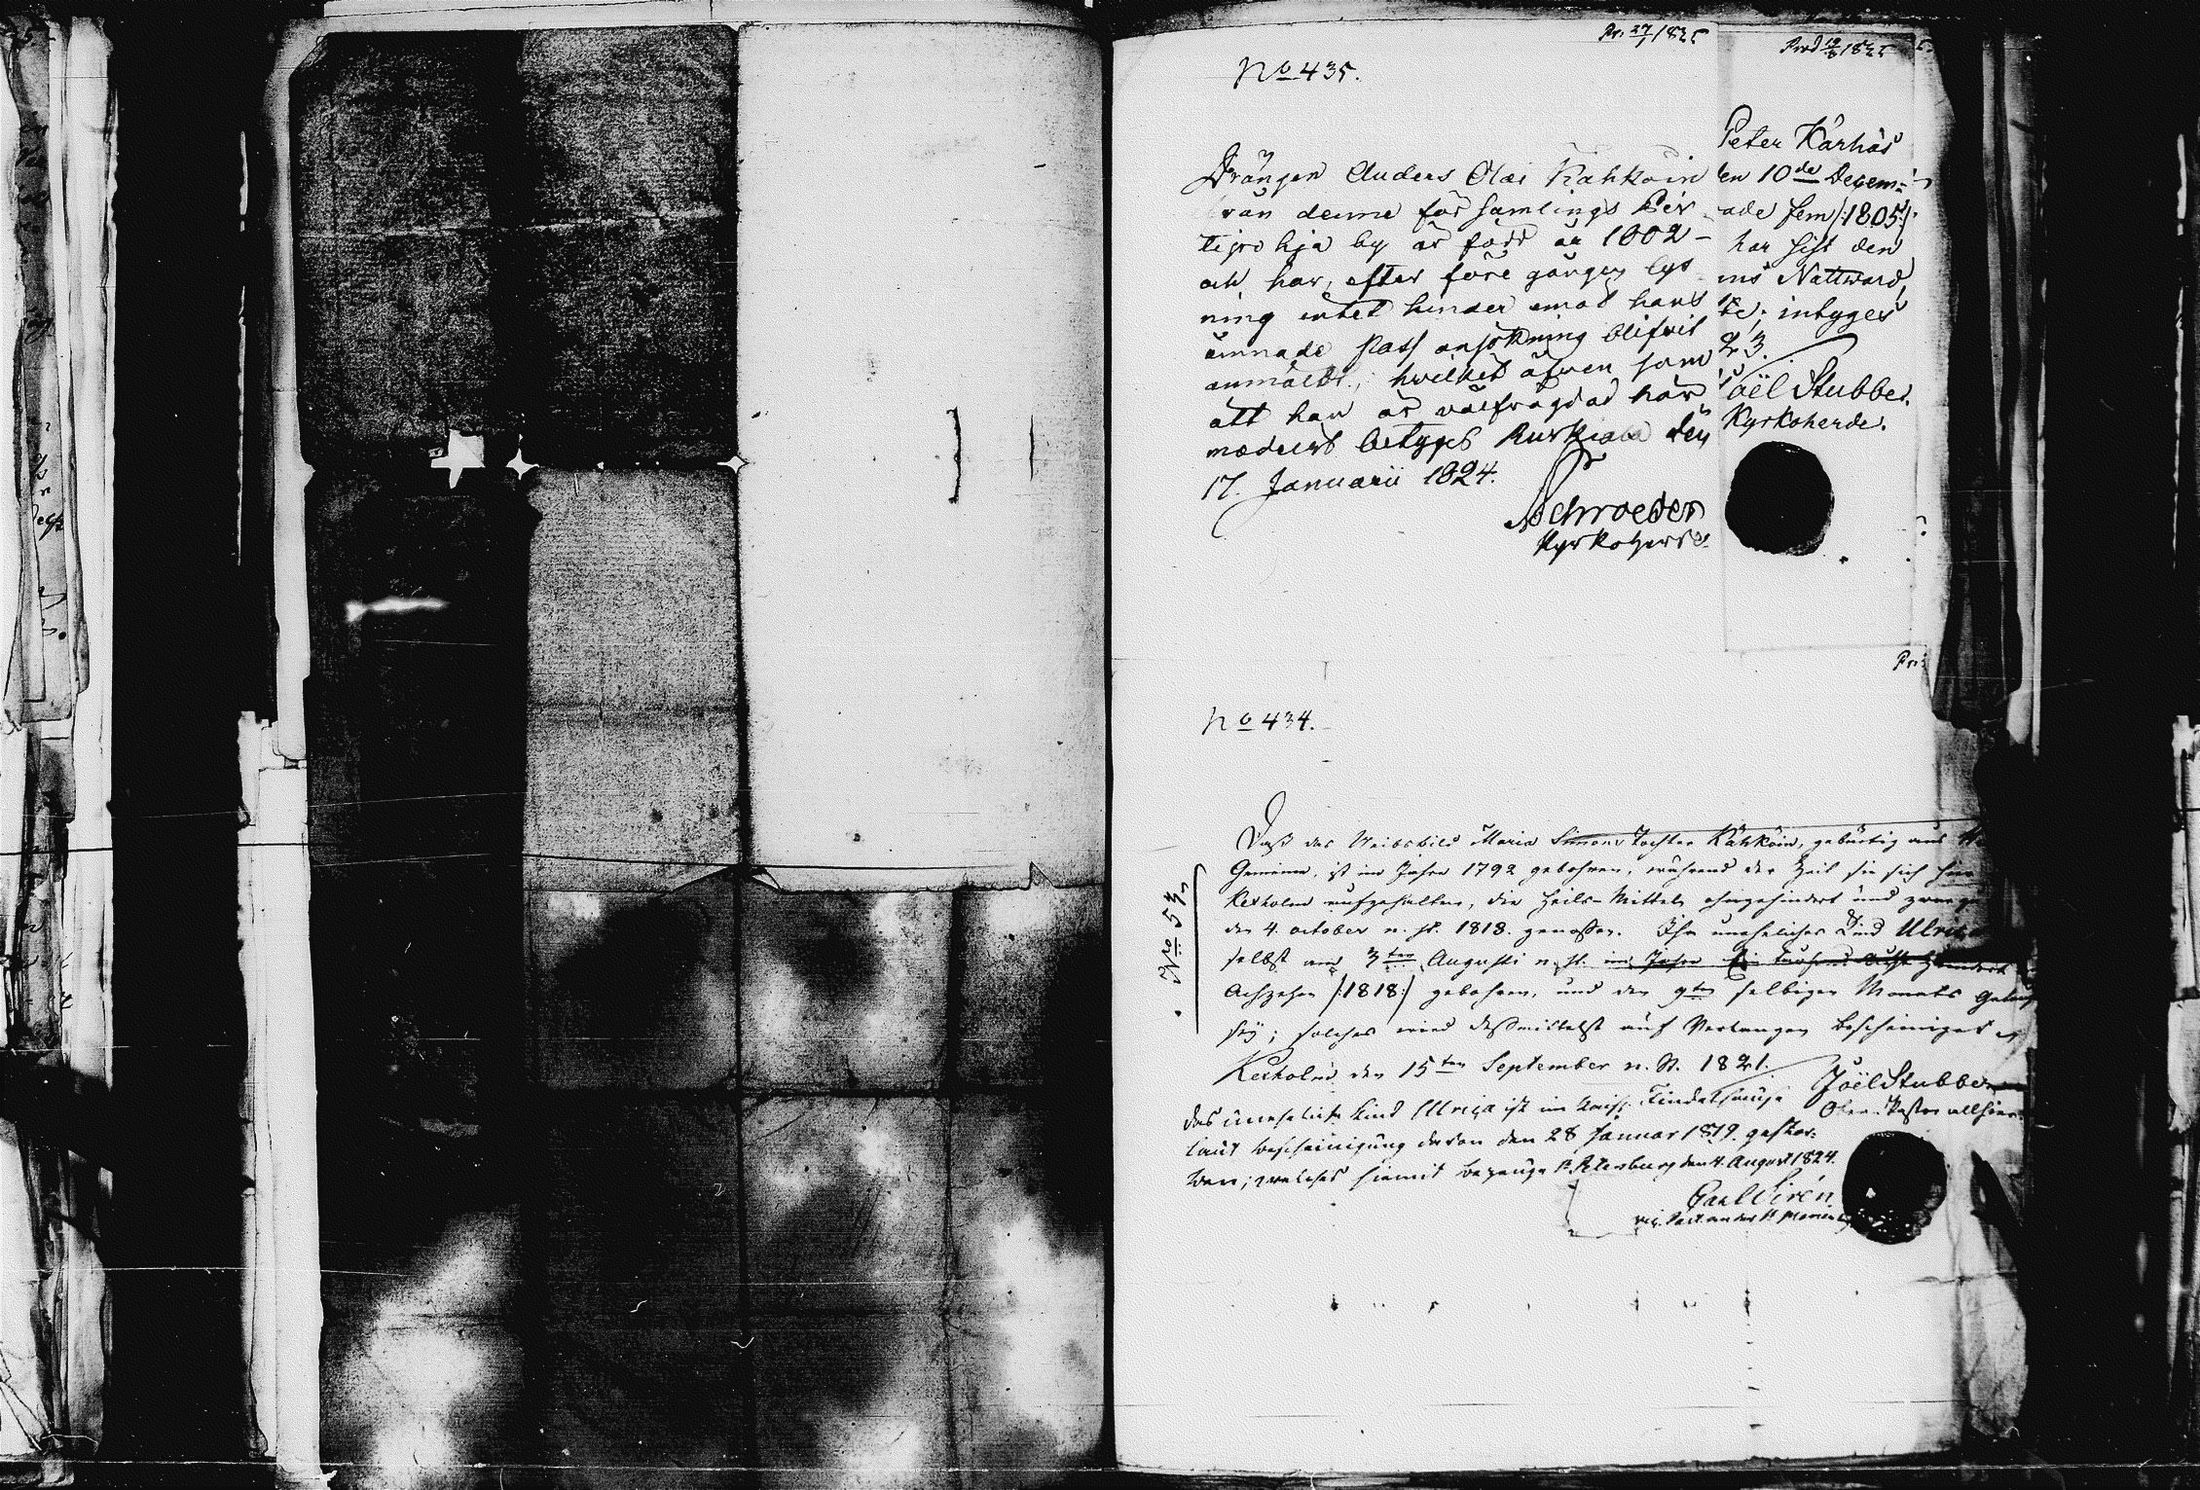 Pr: 27/1 1825
No 435.
Drängen Anders Olai Kähköin
från denne församlings Pir
tijrihja by är född år 1802
och har, efter föregången lys
ning intet hinder emot hans
ämnade Pass ansökning blifvit
anmäldt; hvilket äfven som
att han är välfrägdad här
medelst betyges Ruskiala den
17. Januarii 1824.
Schroeder
Kyrkoherde
Prod 1825
Peter Kärhäs
en 10de Decem=
ade fem /:1805:/
har sist den
ns Nattward,
te; intyges
23.
Joël Stubbe.
Kyrkoherde.
Pr:
No 434.
No 53.
Daß das Weibsbild Maria Simons Tochter Kähköin, gebürtig aus
Gemeine, ist im Jahre 1792 gebohren, während der Zeit sie sich hier
Kexholm aufgehalten, die Heils-Mittel ohngehindert und zwar
den 4. october n. st. 1818. genoßen. Ihr uneheliches Kind Ulrica
selbst am 3ten Augusti n. st. im Jahre Ein tausend acht Hundert
Achzehn /:1818:/ gebohren, und den 9ten selbigen Monats getauf
sey; solches wird deßmittelst auf Verlangen bescheiniget
Kexholm den 15ten September n. St. 1821.
Joël Stubbe
Ober-Pastor allhier
das uneheliche Kind Ulrica ist im Kais. Findelhause
laut Bescheinigung davon den 28 Januar 1819. gestor=
ben; welches hiemit bezeuge St. Petersburg den 4. August 1824.
Carl Sirén
vic. Past. an der St. Marien